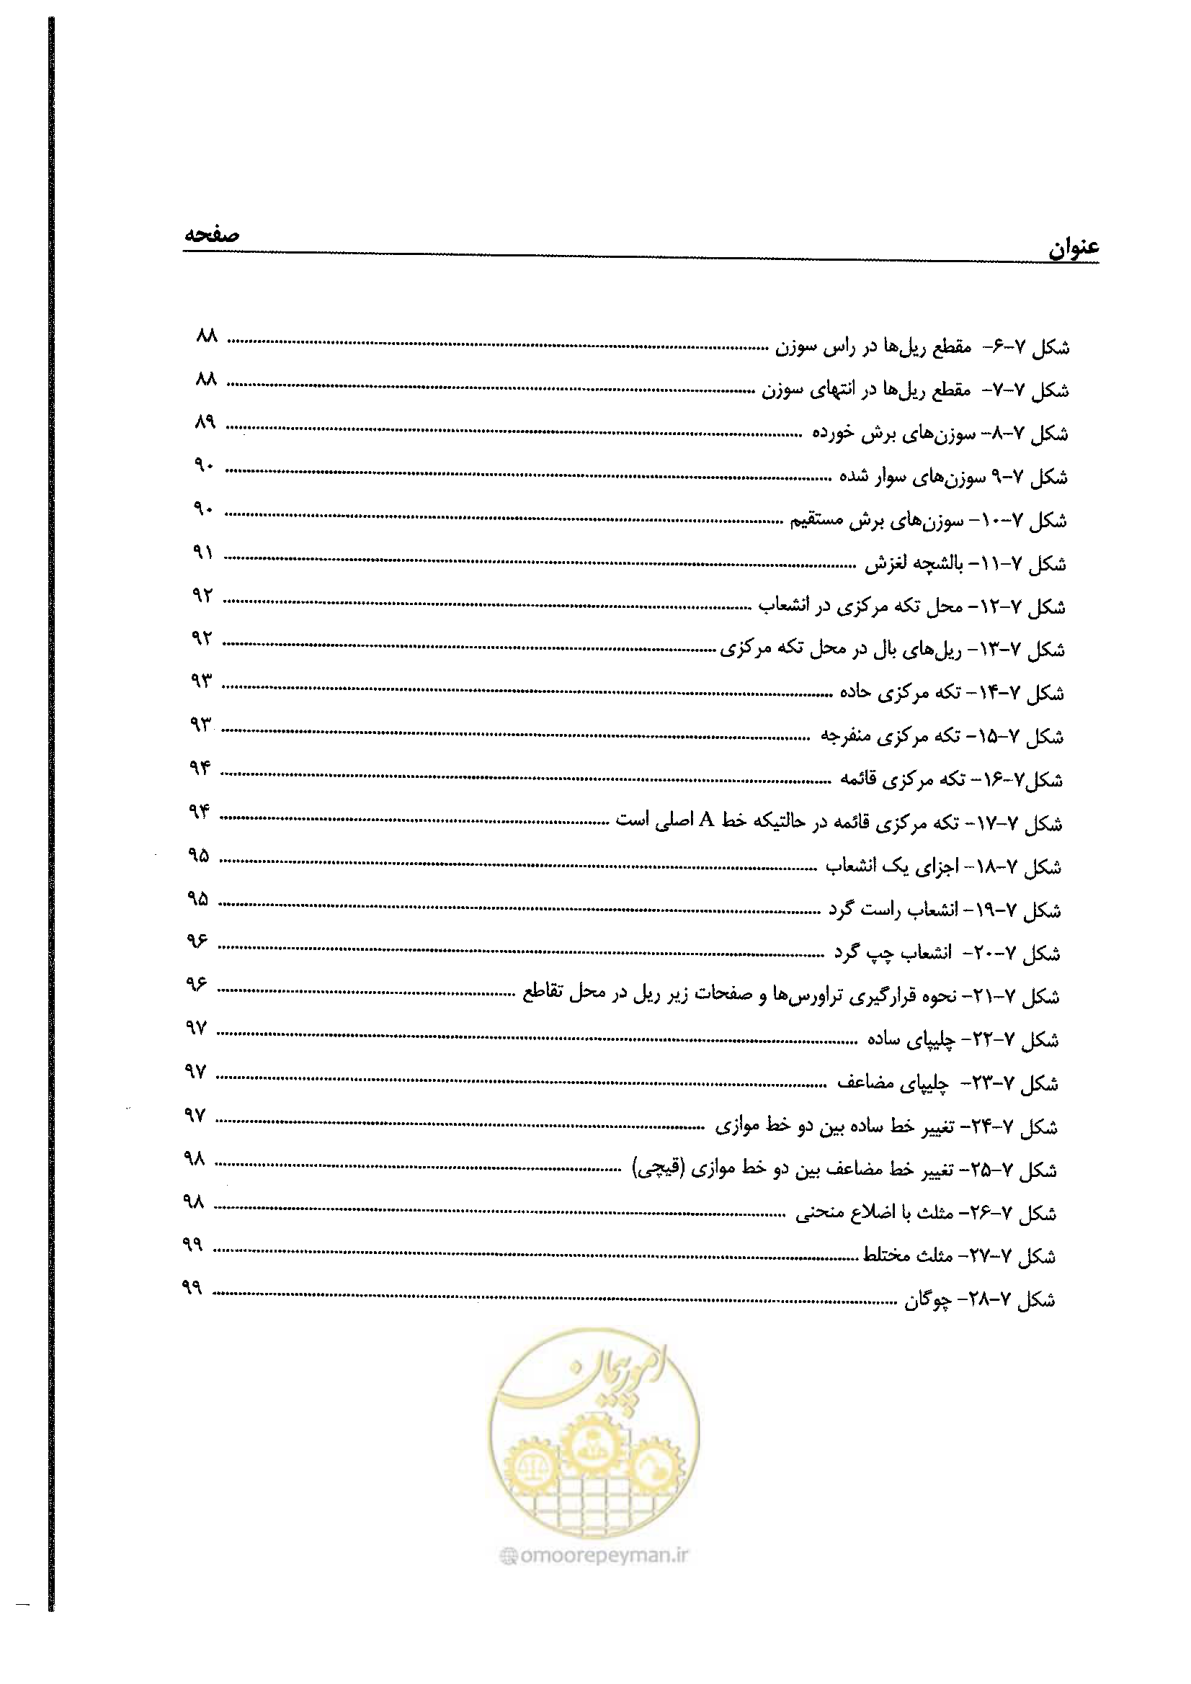 عنوان صفحه
شکل ۷-۶- مقطع ریل‌ها در راس سوزن ........ ۸۸
شکل ۷-۷- مقطع ریل‌ها در انتهای سوزن ........ ۸۸
شکل ۷-۸- سوزن‌های برش خورده ........ ۸۹
شکل ۷-۹ سوزن‌های سوار شده ........ ۹۰
شکل ۷-۱۰- سوزن‌های برش مستقیم ........ ۹۰
شکل ۷-۱۱- بالشچه لغزش ........ ۹۱
شکل ۷-۱۲- محل تکه مرکزی در انشعاب ........ ۹۲
شکل ۷-۱۳- ریل‌های بال در محل تکه مرکزی ........ ۹۲
شکل ۷-۱۴- تکه مرکزی حاده ........ ۹۳
شکل ۷-۱۵- تکه مرکزی منفرجه ........ ۹۳
شکل۷-۱۶- تکه مرکزی قائمه ........ ۹۴
شکل ۷-۱۷- تکه مرکزی قائمه در حالتیکه خط A اصلی است ........ ۹۴
شکل ۷-۱۸- اجزای یک انشعاب ........ ۹۵
شکل ۷-۱۹- انشعاب راست گرد ........ ۹۵
شکل ۷-۲۰- انشعاب چپ گرد ........ ۹۶
شکل ۷-۲۱- نحوه قرارگیری تراورس‌ها و صفحات زیر ریل در محل تقاطع ........ ۹۶
شکل ۷-۲۲- چلیپای ساده ........ ۹۷
شکل ۷-۲۳- چلیپای مضاعف ........ ۹۷
شکل ۷-۲۴- تغییر خط ساده بین دو خط موازی ........ ۹۷
شکل ۷-۲۵- تغییر خط مضاعف بین دو خط موازی (قیچی) ........ ۹۸
شکل ۷-۲۶- مثلث با اضلاع منحنی ........ ۹۸
شکل ۷-۲۷- مثلث مختلط ........ ۹۹
شکل ۷-۲۸- چوگان ........ ۹۹
امور پیمان
@omoorepeyman.ir